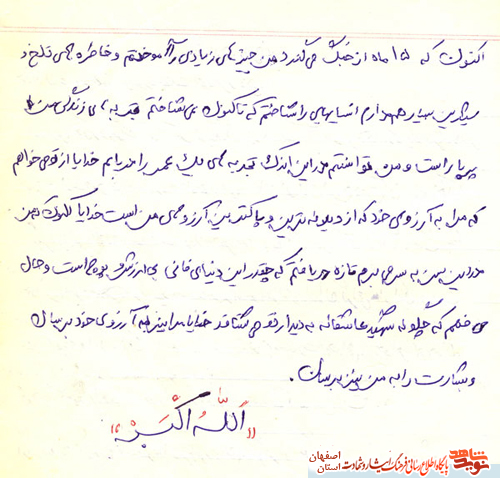 اکنون که ۱۵ ماه از جنگ می‌گذرد من چیزهای زیادی را آموختم و خاطره‌های تلخ و
شیرین بسیار دارم انسانهایی را شناختم که تاکنون نمی‌شناختم تجربه‌های زندگی من
پربار است و من توانستم در این اندک تجربه‌های یک عمر را دریابم خدایا از تو می‌خواهم
که مرا به آرزوی خود که از دیرینه‌ترین و پاکترین آرزوهای من است خدایا اکنون که من
در این سن به سر می‌برم تازه دریافتم که چقدر این دنیای فانی بی‌ارزش و پوچ است و حال
می‌فهمم که چگونه شهید عاشقانه به دیدار تو می‌شتابد خدایا مرا نیز به آرزوی خود برسان
و بشارت را به من نیز برسان.
«اَللهُ اَکْبَرْ»
نوید شاهد
پایگاه اطلاع رسانی فرهنگ ایثار و شهادت
اصفهان
استان